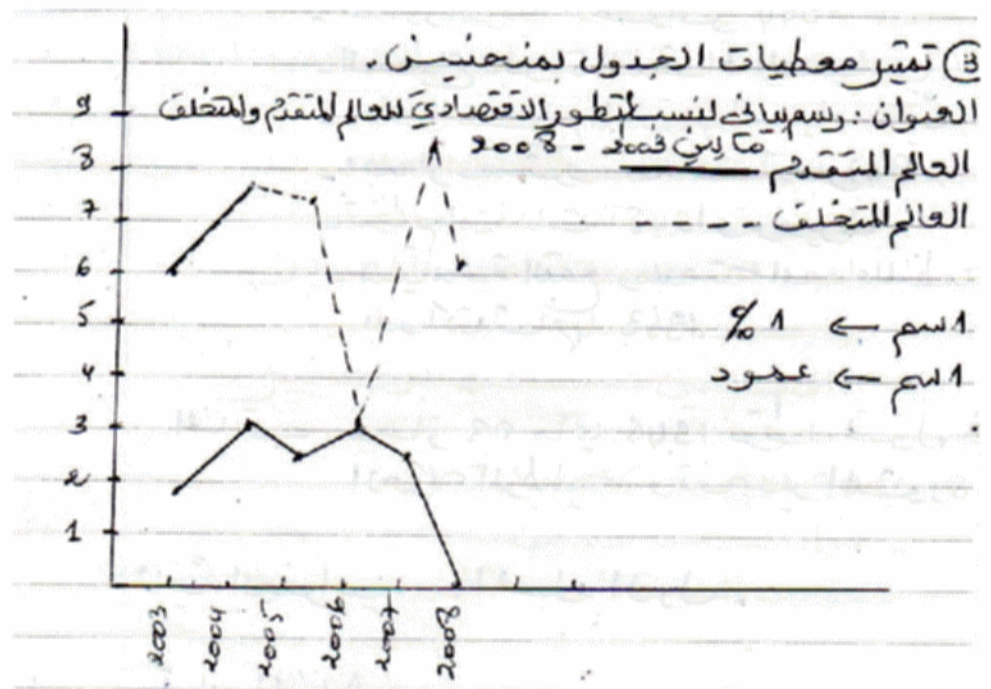 ③ تمثيل معطيات الجدول بمنحنيين.
العنوان : رسم بياني لنسب التطور الاقتصادي للعالم المتقدم والمتخلف
ما بين 2003 - 2008
العالم المتقدم
العالم المتخلف - - - -
1 سم ← 1 %
1 سم ← عمود
9
8
7
6
5
4
3
2
1
2003 2004 2005 2006 2007 2008